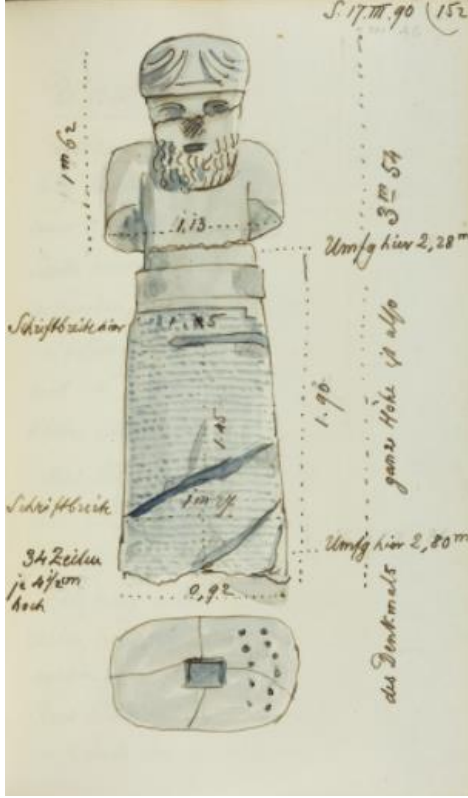 S. 17. III. 90 (152
1 m 62
3 m 54
1,13
Umfg hier 2,28 m
Schriftbreite hier
1.90
ganze Höhe ist also
1.45
Schriftbreite
1 m 27
34 Zeilen
je 4½ cm
hoch
Umfg hier 2,80 m
0,92
des Denkmals